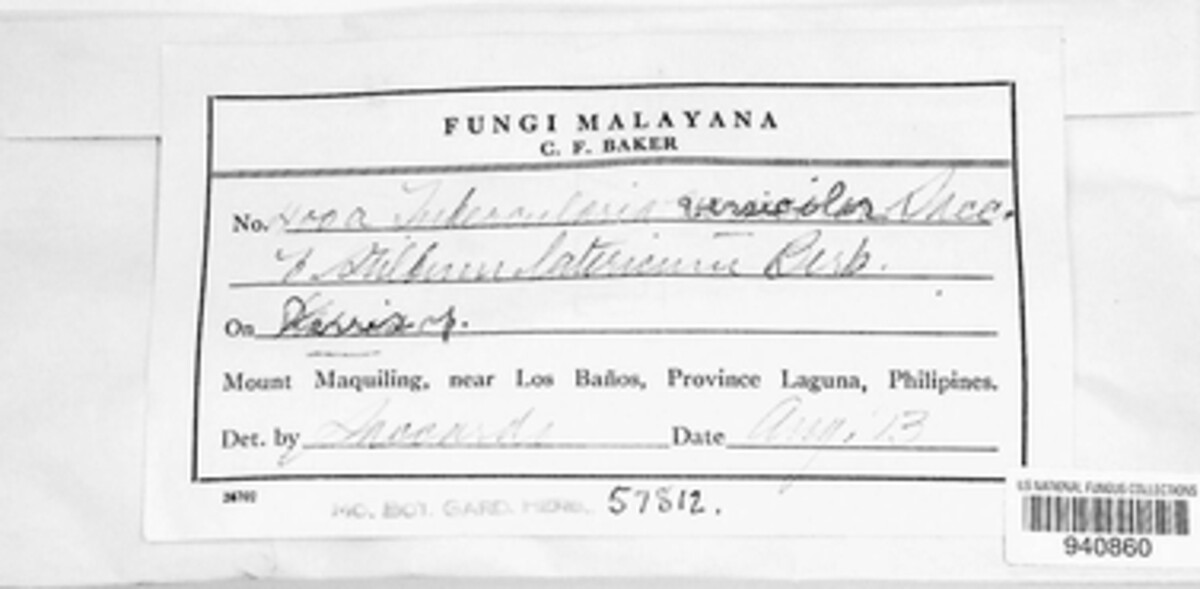 FUNGI MALAYANA
C. F. BAKER
No. Tubercularia versicolor Sacc.
Stilbum latericium Berk.
On
Mount Maquiling, near Los Baños, Province Laguna, Philipines.
Det. by Saccardo Date Aug. 13
26702
MO. BOT. GARD. HERB. 57812.
U.S NATIONAL FUNGUS COLLECTIONS
940860